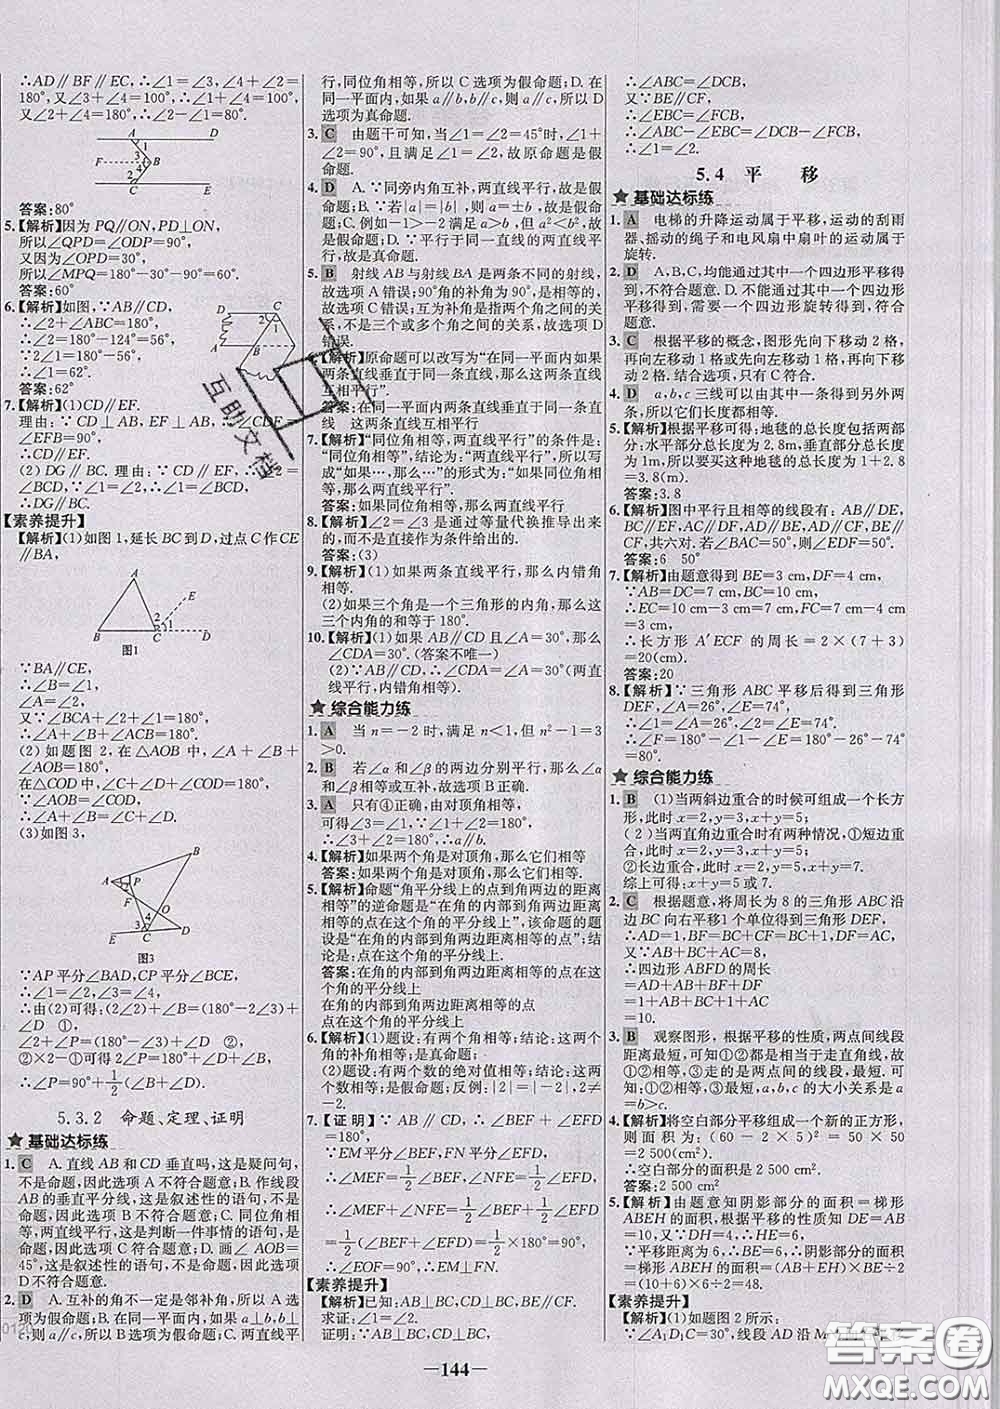 ∴AD∥BF∥EC,∴∠1=∠3,∠4+∠2=
180°,又∠3+∠4=100°,∴∠1+∠4=
100°,又∠2+∠4=180°,∴∠2-∠1=80°.
A
D
1
F
3
B
4
2
E
C
答案:80°
5.【解析】因为PQ∥ON,PD⊥ON,
所以∠QPD=∠ODP=90°,
又因为∠OPD=30°,
所以∠MPQ=180°-30°-90°=60°.
答案:60°
6.【解析】如图,∵AB∥CD,
∴∠2+∠ABC=180°,
∴∠2=180°-124°=56°,
∴∠1=180°-2∠2=
∴∠1=62°.
答案:62°
7.【解析】(1)CD∥EF.
理由:∵CD⊥AB,EF⊥AB,∴∠CDF=
∠EFB=90°,
∴CD∥EF.
(2)DG∥BC.理由:∵CD∥EF,∴∠2=
∠BCD,∵∠1=∠2,∴∠1=∠BCD,
∴DG∥BC.
【素养提升】
【解析】(1)如图1,延长BC到D,过点C作CE
∥BA,
A
E
2
1
B
C
D
图1
∵BA∥CE,
∴∠B=∠1,
∠A=∠2,
又∵∠BCA+∠2+∠1=180°,
∴∠A+∠B+∠ACB=180°.
(2)如题图2,在△AOB中,∠A+∠B+
∠AOB=180°,
在△COD中,∠C+∠D+∠COD=180°,
∵∠AOB=∠COD,
∴∠A+∠B=∠C+∠D.
(3)如图3,
B
A
P
F
O
4
3
E
C
D
图3
∵AP平分∠BAD,CP平分∠BCE,
∴∠1=∠2,∠3=∠4,
∴由(2)可得:(2∠2)+∠B=(180°-2∠3)+
∠D ①,
∠2+∠P=(180°-∠3)+∠D ②,
②×2-①可得:2∠P=180°+∠D+∠B,
∴∠P=90°+1/2(∠B+∠D).
5.3.2 命题、定理、证明
★基础达标练
1. C A.直线AB和CD垂直吗,这是疑问句,
不是命题,因此选项A不符合题意;B.作线段
AB的垂直平分线,这是叙述性的语句,不是命
题,因此选项B不符合题意;C.同位角相等,
两直线平行,这是判断一件事情的语句,是
命题,因此选项C符合题意;D.画∠AOB=
45°,这是叙述性的语句,不是命题,因此选
项D不符合题意.
2. D A.互补的角不一定是邻补角,所以A选
项为假命题;B.在同一平面内,如果a⊥b,b⊥
c,则a∥c,所以B选项为假命题;C.两直线平
行,同位角相等,所以C选项为假命题;D.在
同一平面内,如果a∥b,b∥c,则a∥c,所以D
选项为真命题.
3. C 由题干可知,当∠1=∠2=45°时,∠1+
∠2=90°,且满足∠1=∠2,故原命题是假命
题.
4. D A.∵同旁内角互补,两直线平行,故是假
命题.B.∵若|a|=|b|,则a=±b,故是假命
题.C.例如-1>-2满足a>b,但a²<b²,故是
假命题.D.∵平行于同一直线的两直线平行,
故是真命题.
5. B 射线AB与射线BA是两条不同的射线,
故选项A错误;90°的补角为90°,是直角,
故选项C错误;互为补角是指两个角之间的关
系,不是三个或多个角之间的关系,故选项D
错误.
6.【解析】原命题可以改写为“在同一平面内如果
两条直线垂直于同一条直线,那么这两条直线
互相平行”.
答案:在同一平面内两条直线垂直于同一条直
线 这两条直线互相平行
7.【解析】“同位角相等,两直线平行”的条件是:
“同位角相等”,结论为:“两直线平行”,所以写
成“如果…,那么…”的形式为:“如果同位角相
等,那么两直线平行”.
答案:如果同位角相等,那么两直线平行
8.【解析】∠2=∠3是通过等量代换推导出来
的,而不是直接作为条件给出的.
答案:(3)
9.【解析】(1)如果两条直线平行,那么内错角
相等.
(2)如果三个角是一个三角形的内角,那么这
三个内角的和等于180°.
10.【解析】(1)如果AB∥CD且∠A=30°,那么
∠CDA=30°.(答案不唯一)
(2)∵AB∥CD,∴∠CDA=∠A=30°(两直
线平行,内错角相等).
★综合能力练
1. A 当n=-2时,满足n<1,但n²-1=3
>0.
2. B 若∠α和∠β的两边分别平行,那么∠α
和∠β相等或互补,故选项B正确.
3. A 只有④正确,由对顶角相等,
可得∠3=∠1,∵∠1+∠2=180°,
∴∠3+∠2=180°,∴a∥b.
4.【解析】如果两个角是对顶角,那么它们相等
答案:如果两个角是对顶角,那么它们相等
5.【解析】命题“角平分线上的点到角两边的距离
相等”的逆命题是“在角的内部到角两边距离
相等的点在这个角的平分线上”,该命题的题
设是“在角的内部到角两边距离相等的点;结
论是:点在这个角的平分线上.
答案:在角的内部到角两边距离相等的点在这
个角的平分线上
在角的内部到角两边距离相等的点
点在这个角的平分线上
6.【解析】(1)题设:有两个角相等;结论:这两个
角的补角相等;是真命题.
(2)题设:有两个数的绝对值相等;结论:这两
个数相等;是假命题;反例:|2|=|-2|,2≠
-2.
7.【证明】∵AB∥CD,∴∠BEF+∠EFD
=180°,
∵EM平分∠BEF,FN平分∠EFD,
∴∠MEF=1/2∠BEF,∠NFE=1/2∠EFD,
∴∠MEF+∠NFE=1/2∠BEF+1/2∠EFD
=1/2(∠BEF+∠EFD)=1/2×180°=90°,
∴∠EOF=90°,∴EM⊥FN.
【素养提升】
【解析】已知:AB⊥BC,CD⊥BC,BE∥CF.
求证:∠1=∠2.
证明:∵AB⊥BC,CD⊥BC,
∴∠ABC=∠DCB,
又∵BE∥CF,
∴∠EBC=∠FCB,
∴∠ABC-∠EBC=∠DCB-∠FCB,
∴∠1=∠2.
5.4 平 移
★基础达标练
1. A 电梯的升降运动属于平移,运动的刮雨
器、摇动的绳子和电风扇中扇叶的运动属于
旋转.
2. D A,B,C,均能通过其中一个四边形平移得
到,不符合题意.D.不能通过其中一个四边形
平移得到,需要一个四边形旋转得到,符合
题意.
3. C 根据平移的概念,图形先向下移动2格,
再向左移动1格或先向左移动1格,再向下移
动2格.结合选项,只有C符合.
4. D a,b,c三线可以由其中一条得到另外两
条,所以它们长度都相等.
5.【解析】根据平移可得;地毯的总长度包括两部
分:水平部分总长度为2.8m,垂直部分总长度
为1m,所以要买这种地毯的总长度为1+2.8
=3.8(m).
答案:3.8
6.【解析】图中平行且相等的线段有:AB∥DE,
BC∥EF,AC∥DF,AD∥BE,AD∥CF,BE∥
CF,共六对.若∠BAC=50°,则∠EDF=50°.
答案:6 50°
7.【解析】由题意得到BE=3 cm,DF=4 cm,
∵AB=DE=7 cm,BC=10 cm,
∴EC=10 cm-3 cm=7 cm,
FC=7 cm-4 cm=3 cm,
∴长方形A′ECF的周长=2×(7+3)
=20(cm).
答案:20
8.【解析】∵三角形ABC平移后得到三角形
DEF,∠A=26°,∠F=74°,
∴∠1=∠A=26°,∠2=∠F=74°,
∴∠F=180°-∠1-∠2=180°-26°-74°
=80°.
★综合能力练
1. B (1)当两斜边重合的时候可组成一个长方
形,此时x=2,y=3,x+y=5;
(2)当两直角边重合时有两种情况,①短边重
合,此时x=2,y=3,x+y=5;
②长边重合,此时x=2,y=5,x+y=7.
综上可得:x+y=5或7.
2. C 根据题意,将周长为8的三角形ABC沿
边BC向右平移1个单位得到三角形DEF,
∴AD=1,BF=BC+CF=BC+1,DF=AC,
又∵AB+BC+AC=8,
∴四边形ABFD的周长
=AD+AB+BF+DF
=1+AB+BC+1+AC
=10.
3. B 观察图形,根据平移的性质,两点间线段
距离最短,可知①②都相当于走直角线,故
①②相等,③走的是两点间的线段,最短.故
①=②>③最短,a,b,c的大小关系是a=
b>c.
4.【解析】将空白部分平移组成一个新的正方形,
则面积为:(60-2×5)²=50×50=
2 500(cm²).
∴空白部分的面积是2 500 cm².
答案:2 500 cm²
5.【解析】由题意知阴影部分的面积=梯形
ABEH的面积,根据平移的性质知DE=AB
=10,又∵DH=4,∴HE=6,
∵平移距离为6,∴BE=6,∴阴影部分的面积
=梯形ABEH的面积=(AB+EH)×BE÷2=
(10+6)×6÷2=48.
【素养提升】
【解析】(1)如图2所示:
∵∠A₁D₁C=30°,线段AD沿
—144—
互助文档
答案圈
MXQE.COM